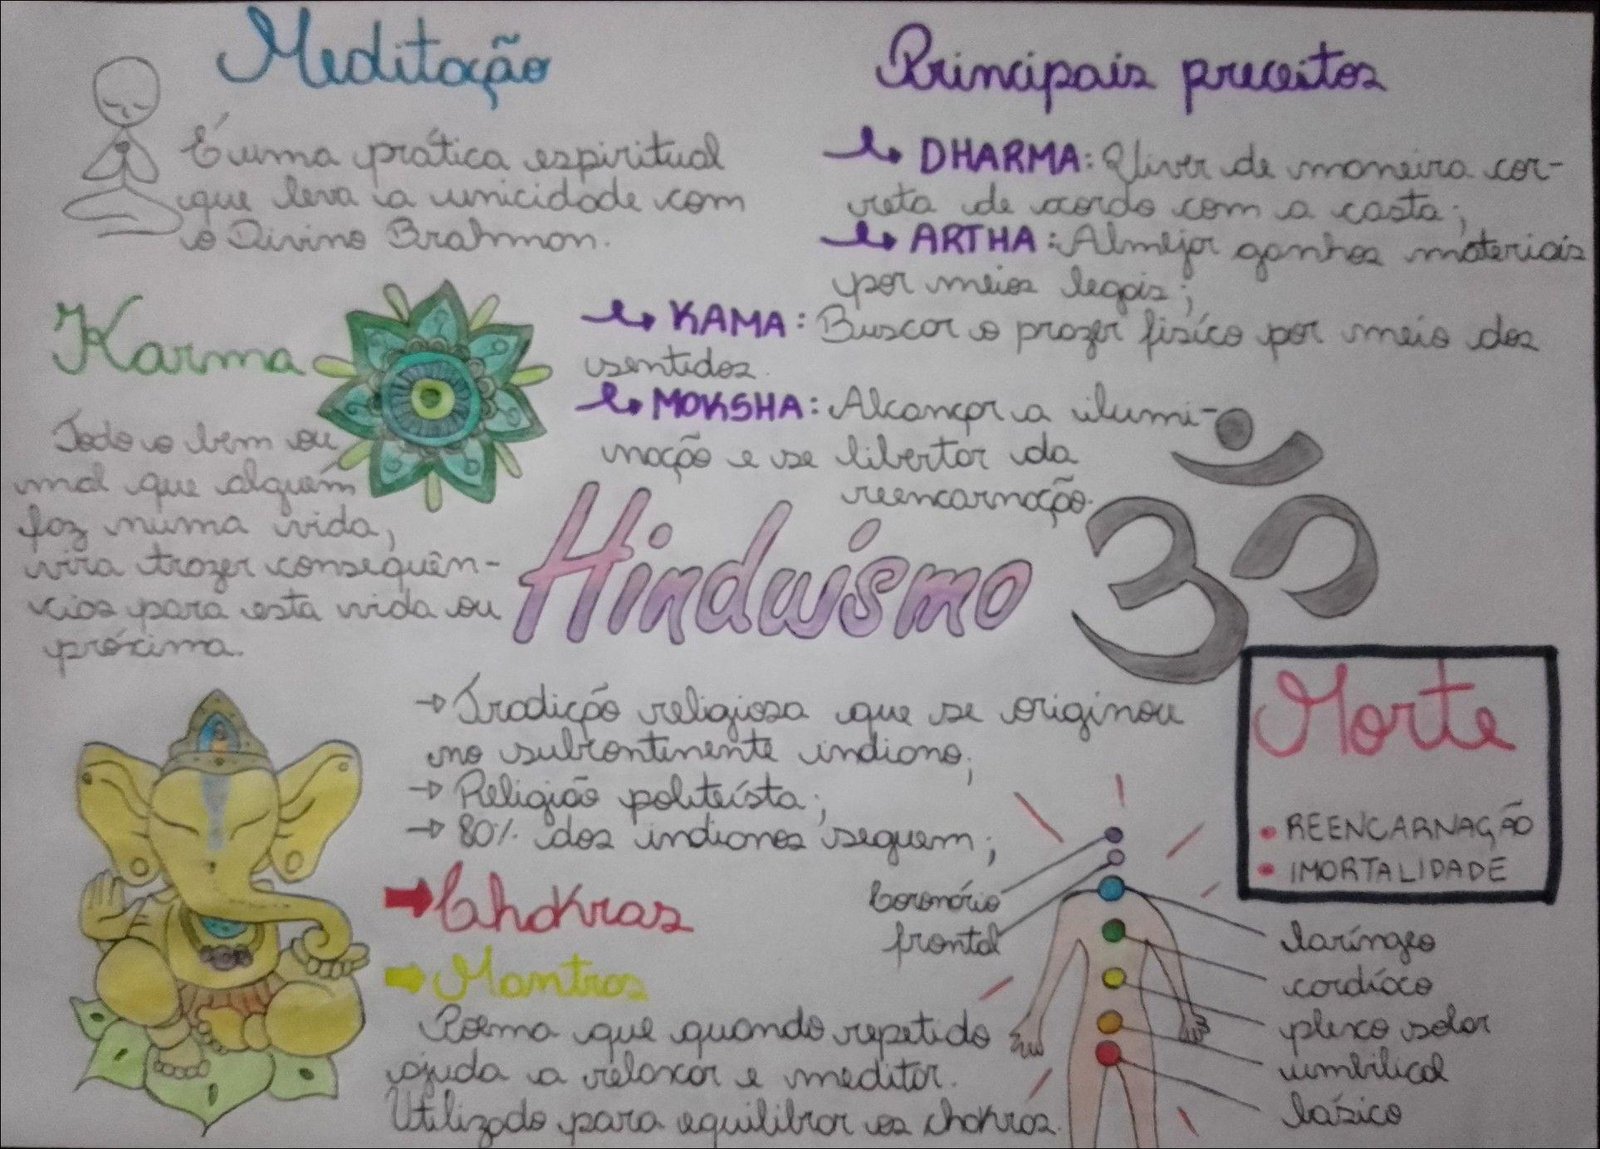 Meditação
É uma prática espiritual
que leva a unicidade com
o Divino Brahman.
Principais preceitos
DHARMA: Viver de maneira cor-
reta de acordo com a casta;
ARTHA: Almejar ganhos materiais
por meios legais;
KAMA: Buscar o prazer físico por meio dos
sentidos.
MOKSHA: Alcançar a ilumi-
nação e se libertar da
reencarnação.
Karma
Todo o bem ou
mal que alguém
faz numa vida,
vira trazer consequên-
cias para esta vida ou
próxima.
Hinduísmo
→ Tradição religiosa que se originou
no subcontinente indiano;
→ Religião politeísta;
→ 80% dos indianos seguem;
Morte
• REENCARNAÇÃO
• IMORTALIDADE
Chakras
Coronário
frontal
laríngeo
cardíaco
plexo solar
umbilical
básico
Mantras
Poema que quando repetido
ajuda a relaxar e meditar.
Utilizado para equilibrar os chakras.